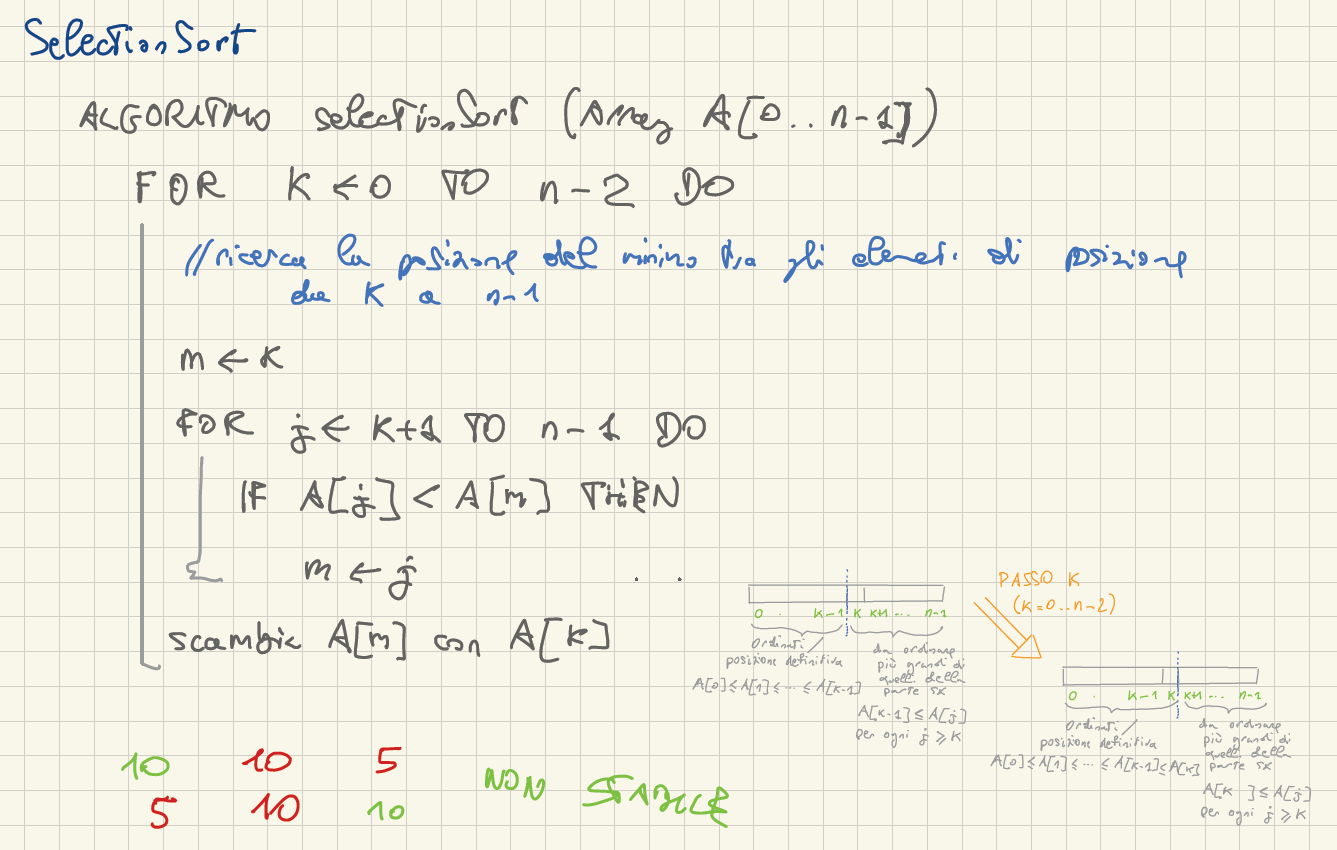 SelectionSort
ALGORITMO selectionSort (Array A[0..n-1])
FOR K ← 0 TO n-2 DO
//ricerca la posizione del minimo tra gli elementi di posizione
da K a n-1
m ← K
FOR j ← K+1 TO n-1 DO
IF A[j] < A[m] THEN
m ← j
scambia A[m] con A[K]
0 . K-1 K K+1 ... n-1
Ordinati / posizione definitiva
A[0] ≤ A[1] ≤ ... ≤ A[K-1]
da ordinare
più grandi di
quelli della
parte sx
A[K-1] ≤ A[j]
per ogni j ≥ K
PASSO K
(K=0..n-2)
0 . K-1 K K+1 ... n-1
Ordinati / posizione definitiva
A[0] ≤ A[1] ≤ ... ≤ A[K-1] ≤ A[K]
da ordinare
più grandi di
quelli della
parte sx
A[K ] ≤ A[j]
per ogni j ≥ K
10 10 5
5 10 10
NON STABILE